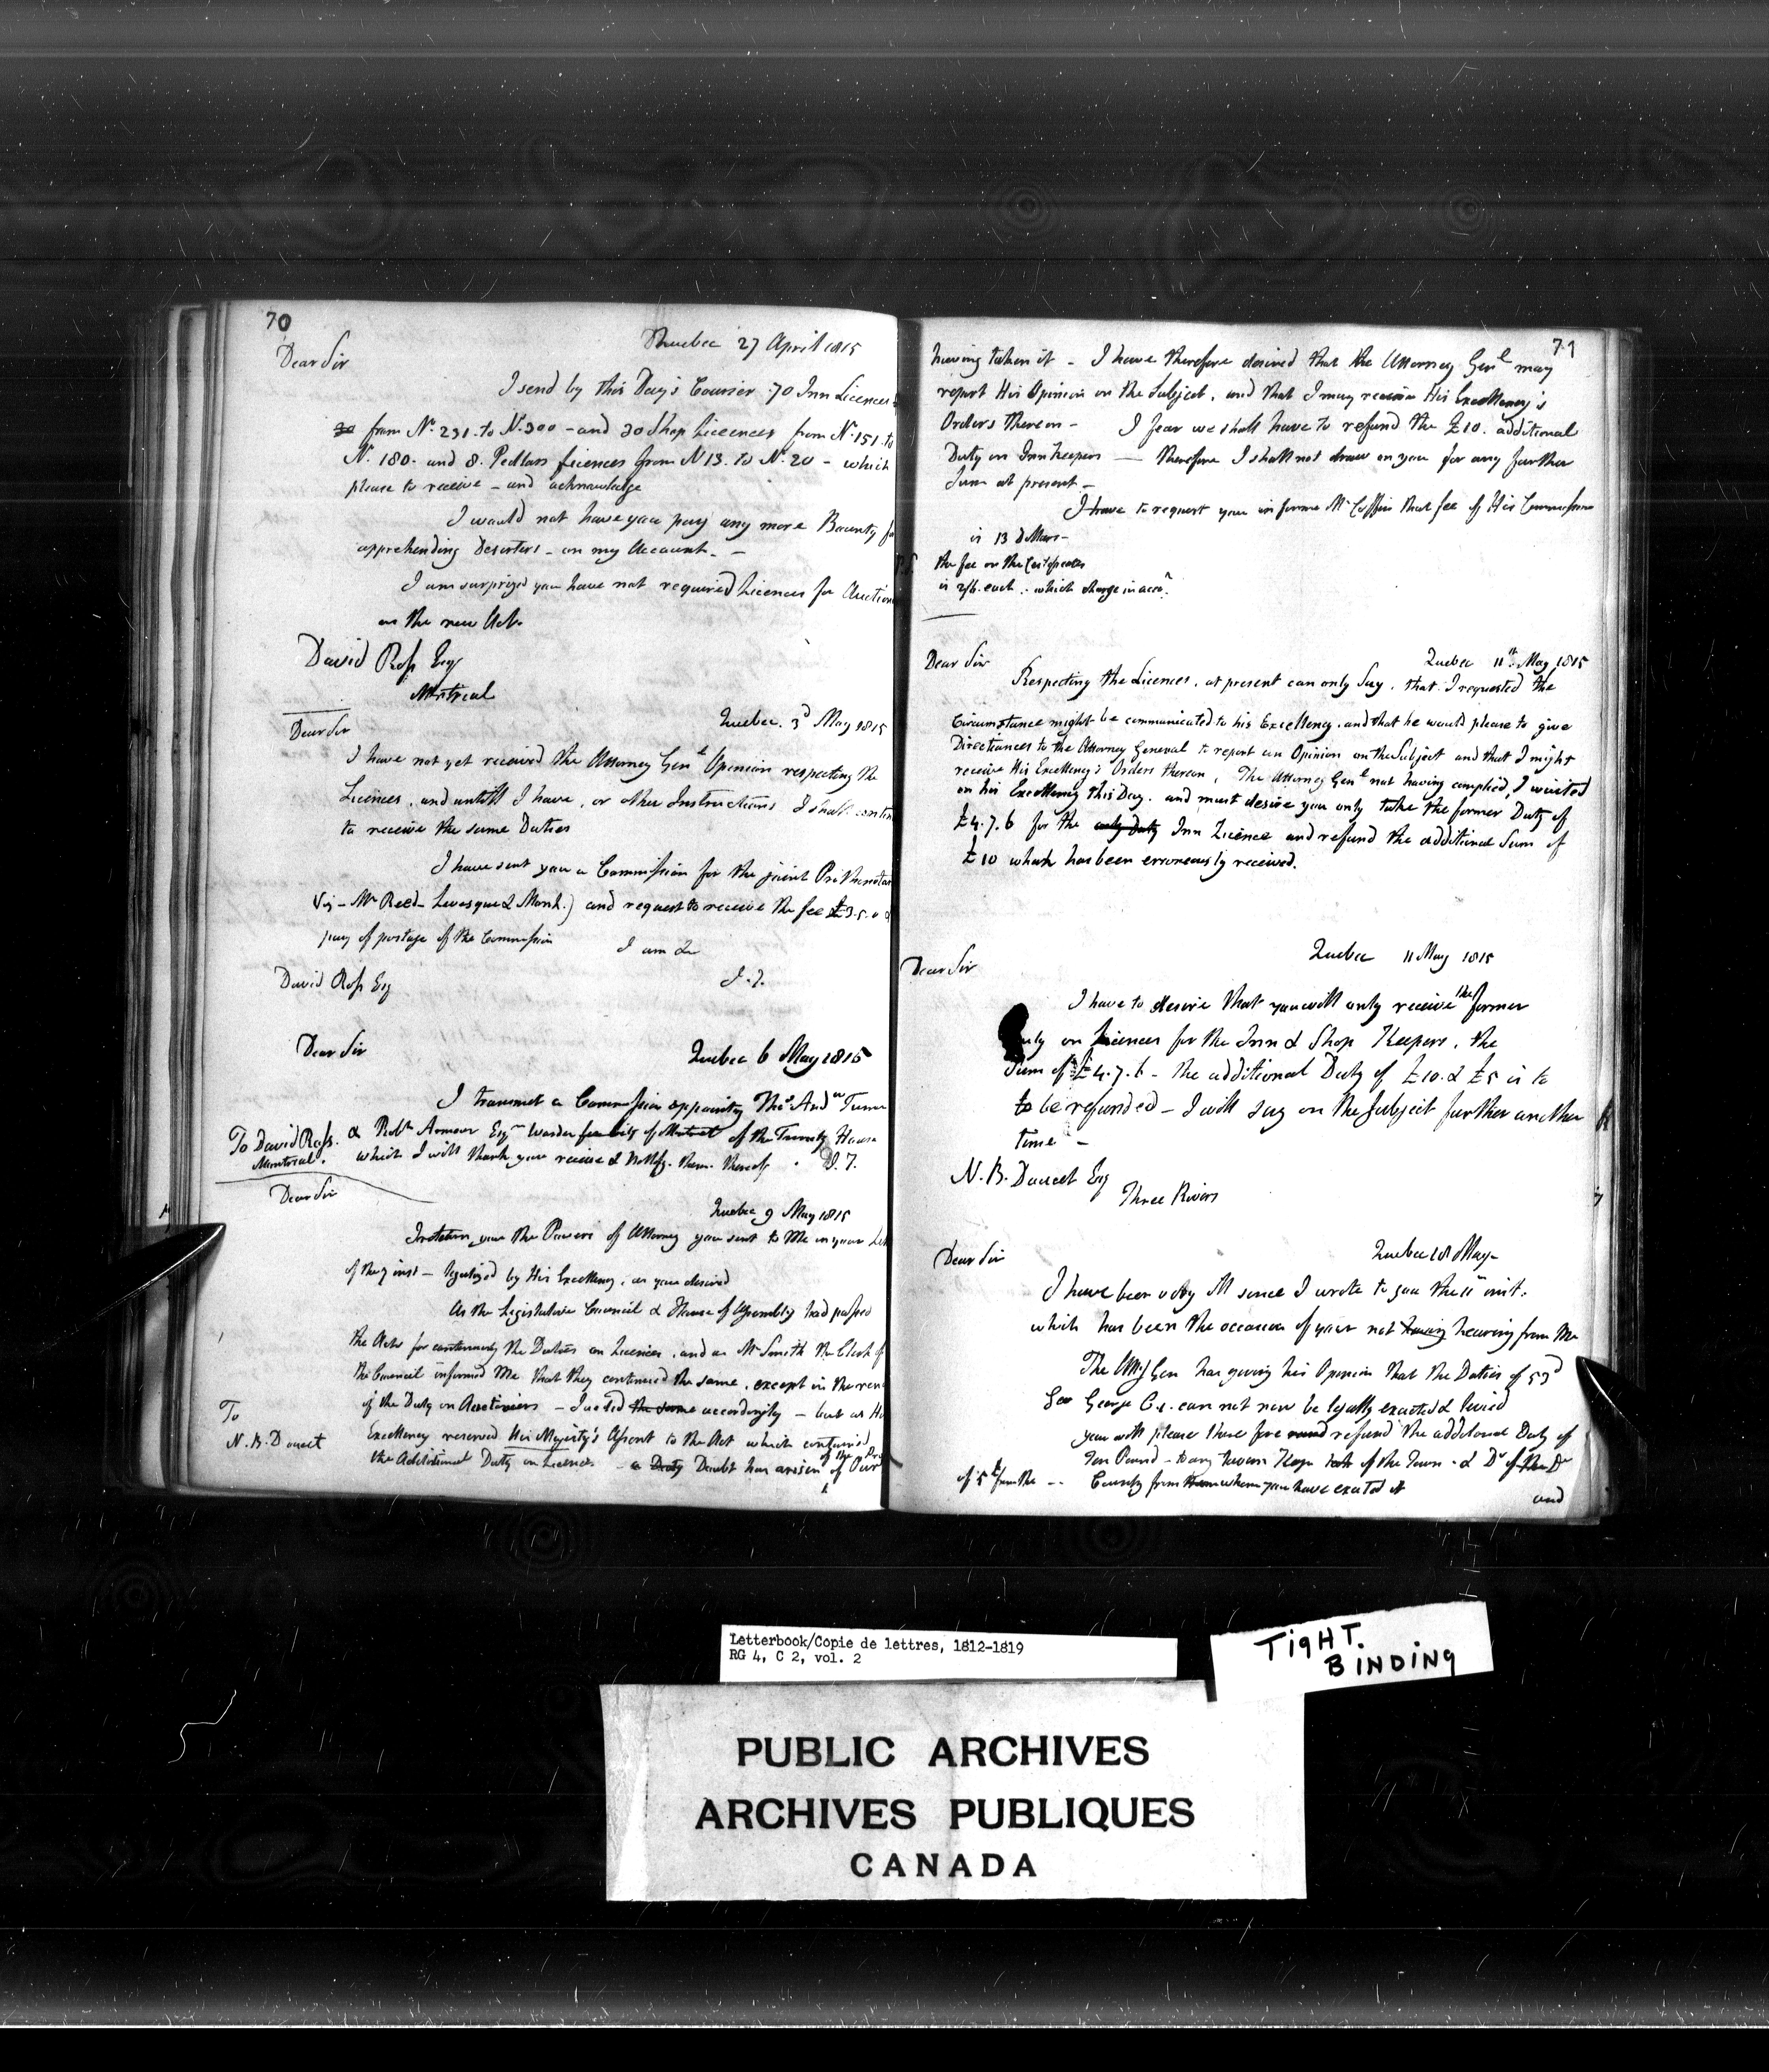 70
Quebec 27 April 1815
Dear Sir
I send by this Day's Courier 70 Inn Licences
from N. 231. to N. 300 - and 30 Shop Licences from N. 151. to
N. 180. and 8. Pedlars Licences from N 13. to N. 20 - which
please to receive - and acknowledge
I would not have you pay any more Bounty for
apprehending Deserters - on my Account. -
I am surprized you have not required Licences for Auction
on the new Act.
David Ross Esq
Montreal
Quebec. 3d May 1815
Dear Sir
I have not yet received the Attorney Genl Opinion respecting the
Licences, and untill I have, or other Instructions I shall contin
to receive the same Duties
I have sent you a Commission for the joint Prothonotar
Viz - Mr Reed - Levesque & Monk.) and request to receive the fee £3.5.0 &
pay of postage of the Commission
I am &c
J. T.
David Ross Esq
Dear Sir
Quebec 6 May 1815
I transmit a Commission appointing Thos Andw Turner
& Robt Armour Esqrs Warden of the Trinity House
which I will thank you receive & Notify them thereof. J. T.
To David Ross.
Montreal.
Dear Sir
Quebec 9 May 1815
I return you the Powers of Attorney you sent to Me in your Let
of the 7 inst - legalized by His Excellency, as you desired
As the Legislative Council & House of Assembly had passed
the Acts for continuing the Duties on Licences, and as Mr Smith the Clerk of
the Council informed Me that they continued the same, except in the
of the Duty on Auctioniers - I acted the same accordingly - but as His
Excellency reserved His Majesty's Assent to the Act which contained
the Additional Duty on Licences - a Duty Doubt has arisen of
To
N. B. Doucet
71
having taken it - I have therefore desired that the Attorney Genl may
report His Opinion on the Subject, and that I may receive His Excellency's
Orders thereon - I fear we shall have to refund the £10. additional
Duty on Inn Keepers - therefore I shall not draw on you for any further
Sum at present -
I have to request you inform Mr Coffin that fee of His Commission
is 13 Dollars -
P.S. the fee on the Certificates
is 2/6 each - which charge in acct.
Dear Sir
Quebec 11th May 1815
Respecting the Licences, at present can only Say, that I requested the
Circumstance might be communicated to his Excellency, and that he would please to give
Directions to the Attorney General to report an Opinion on the Subject and that I might
receive His Excellency's Orders thereon, The Attorney Genl not having complied, I waited
on his Excellency this Day. and must desire you only take the former Duty of
£4.7.6 for the only Duty Inn Licence and refund the additional Sum of
£10 which has been erroneously received.
Quebec 11 May 1815
Dear Sir
I have to desire that you will only receive the former
Duty on Licences for the Inn & Shop Keepers, the
Sum of £4.7.6 - the additional Duty of £10. & £5 is to
to be refunded - I will say on the Subject further another
time -
N. B. Doucet Esq
Three Rivers
Quebec 18 May -
Dear Sir
I have been very ill since I wrote to you the 11 init.
which has been the occasion of your not having hearing from Me
The Atty Gen has giving his Opinion that the Duties of 53d
Geo George C. 1. can not now be legally exacted & levied
you will please there fore refund the additional Duty of
Ten Pound - to any Tavern Keeper of the Town - & Do of the Do
of 5£ from the -- County from whom you have exacted it
and
Letterbook/Copie de lettres, 1812-1819
RG 4, C 2, vol. 2
TIGHT.
BINDING
PUBLIC ARCHIVES
ARCHIVES PUBLIQUES
CANADA